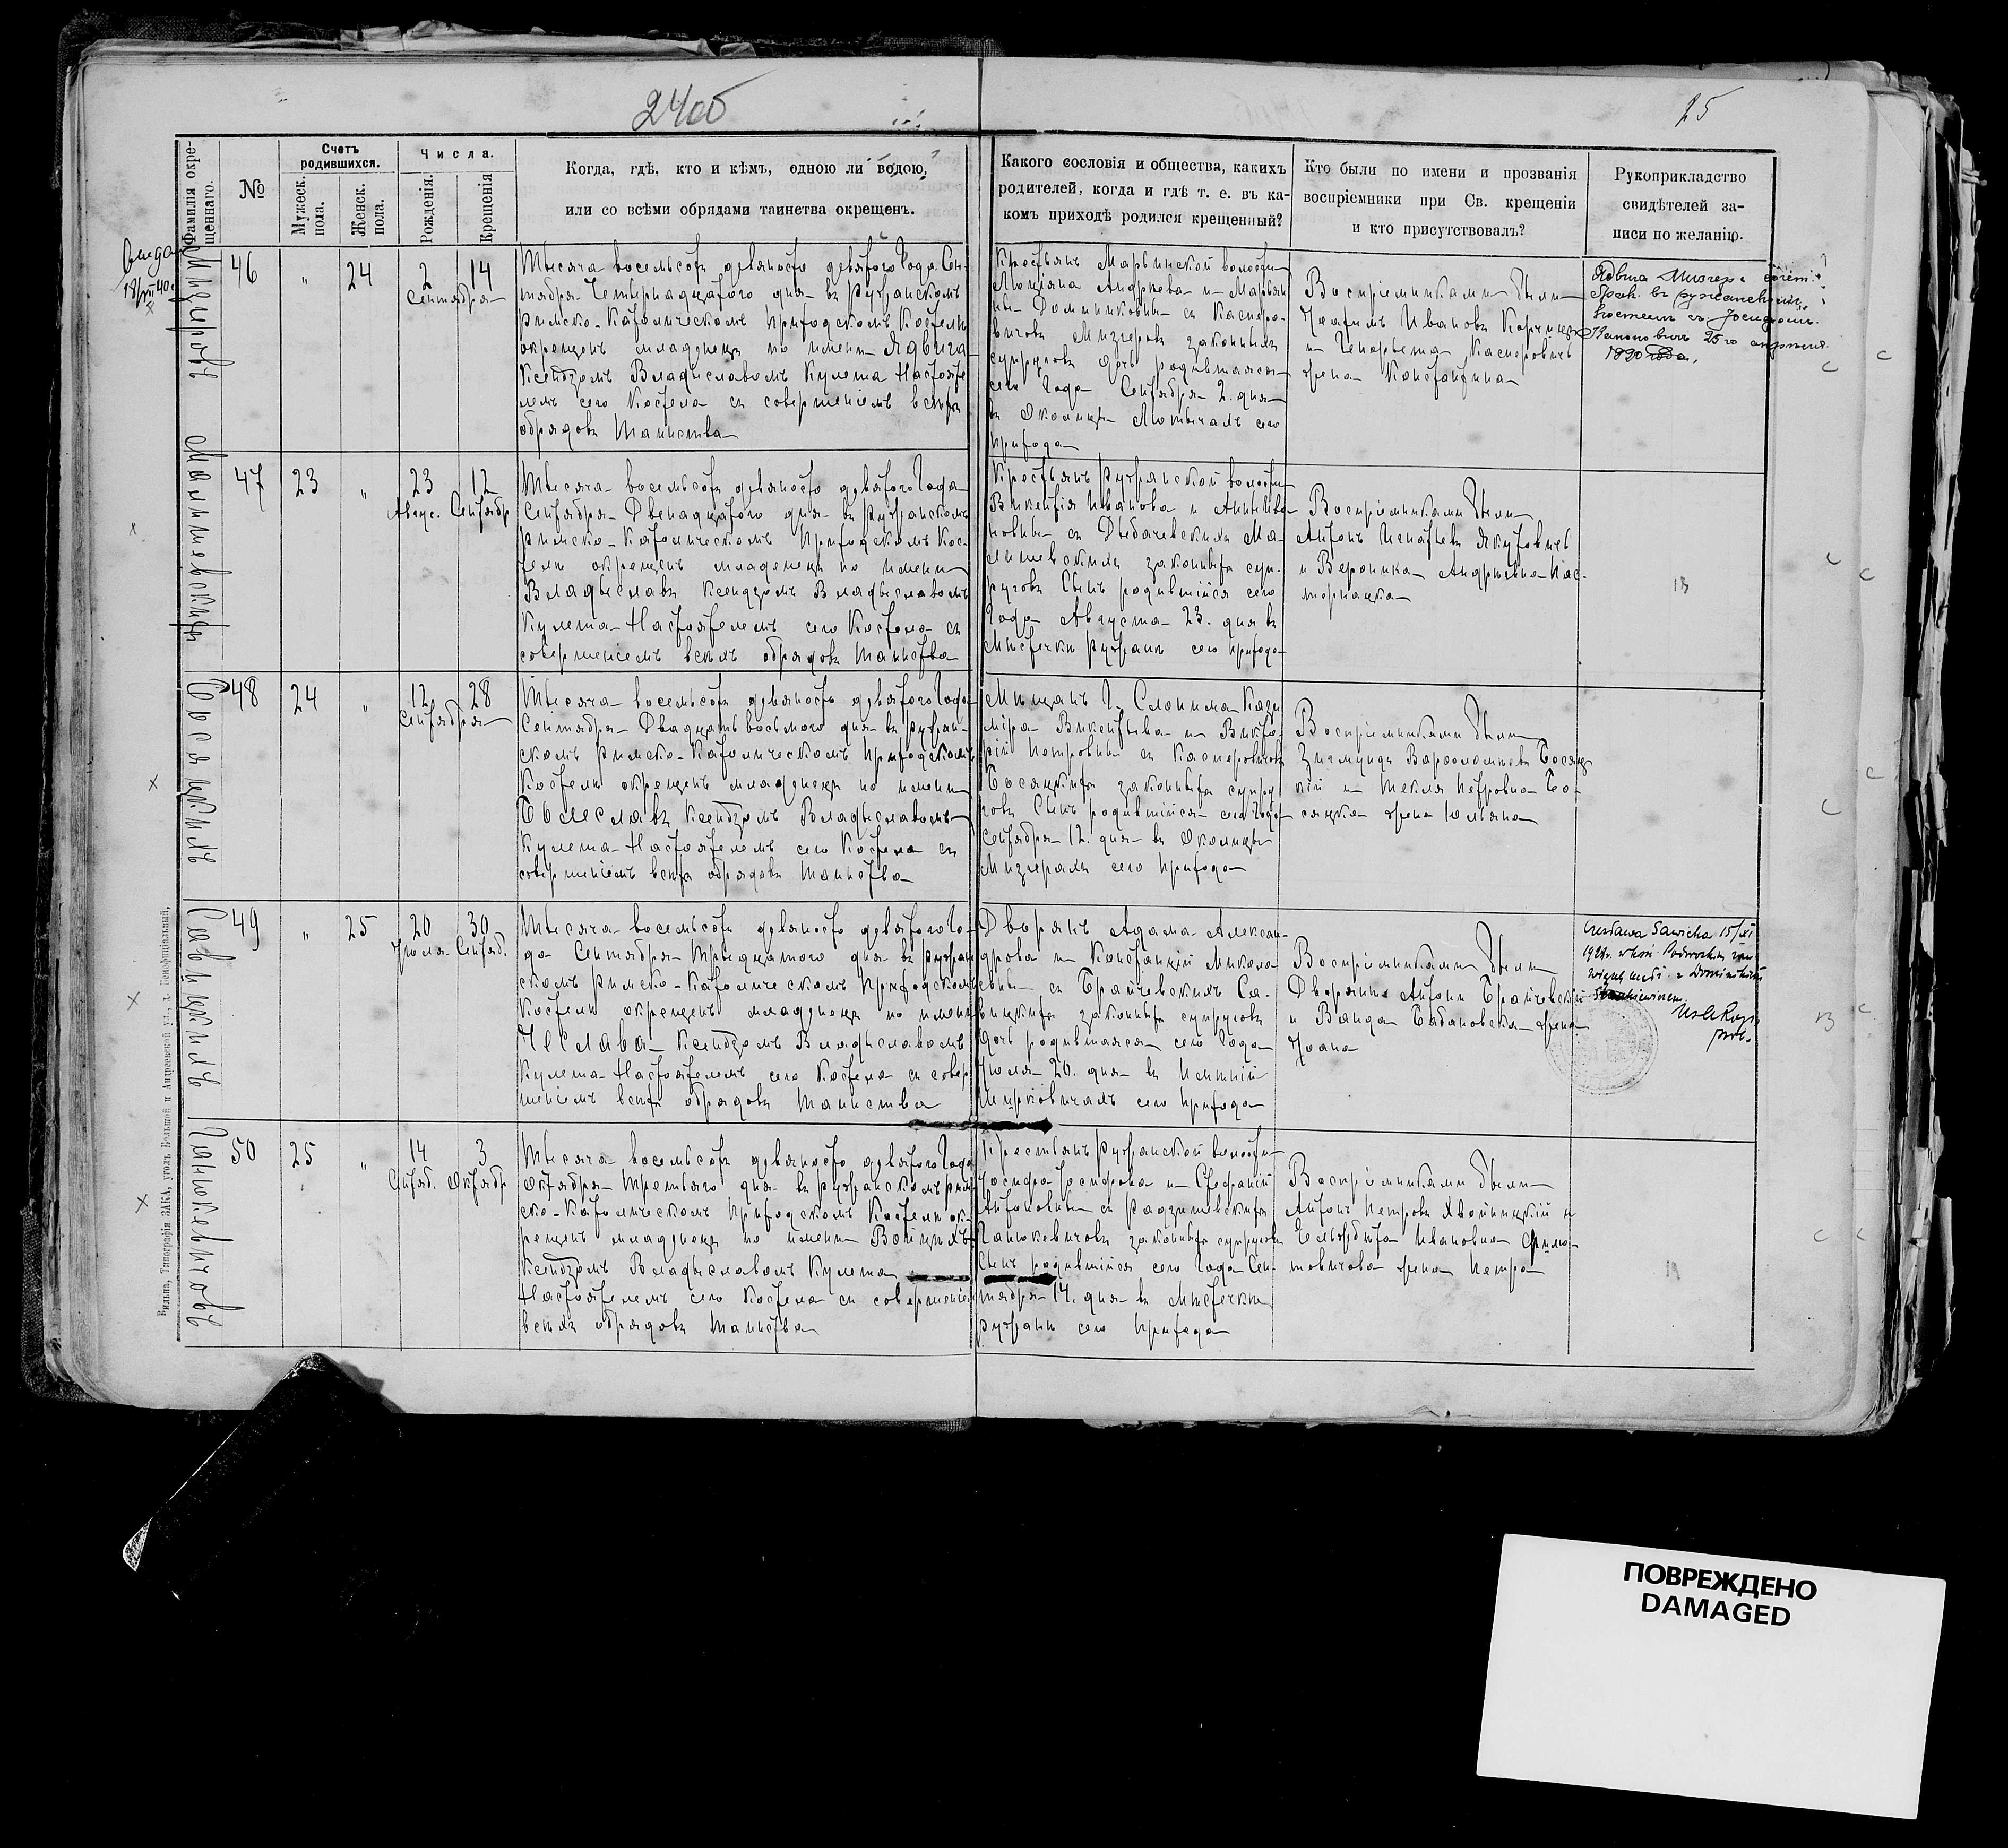 24об
25
Фамилія окре-
щеннаго.
№
Счетъ
родившихся.
Мужеск.
пола.
Женск.
пола.
Числа.
Рожденія.
Крещенія
Когда, гдѣ, кто и кѣмъ, одною ли водою,
или со всѣми обрядами таинства окрещенъ.
Какого сословія и общества, какихъ
родителей, когда и гдѣ т. е. въ ка-
комъ приходѣ родился крещенный?
Кто были по имени и прозванія
воспріемники при Св. крещеніи
и кто присутствовалъ?
Рукоприкладство
свидѣтелей за-
писи по желанію.
Мизгеровъ
46
"
24
2
14
Сентября
Тысяча восемьсотъ девяносто девятого Года Сен-
тября Четырнадцатого дня въ Ружанскомъ
Римско-Католическомъ Приходскомъ Костелѣ
окрещенъ младенецъ по имени Ядвига
Ксендзомъ Владиславомъ Кулета Настояте
лемъ сего Костела съ совершеніемъ всѣхъ
обрядовъ Таинства
Крестьянъ Марьинской волости
Люціяна Андреева и Марьян
ны Доминиковны съ Каспоро-
вичовъ Мизгеровъ законныхъ
супруговъ дочь родившаяся
сего Года Сентября 2. дня
въ Околицѣ сего
Прихода
Воспріемниками были
Іоахимъ Ивановъ
и Каспоровичъ
жена Константина
1920 года.
Малишевскихъ
47
23
"
23
12
Авгус. Сентябр
Тысяча восемьсотъ девяносто девятого Года
Сентября Двенадцатого дня въ Ружанскомъ
Римско-Католическомъ Приходскомъ Кос-
телѣ окрещенъ младенецъ по имени
Владыславъ Ксендзомъ Владыславомъ
Кулета Настоятелемъ сего Костела съ
совершеніемъ всѣхъ обрядовъ Таинства
Крестьянъ Ружанской волости
Викентія Иванова и Анны Ива
новны съ Ма-
лишевскихъ законныхъ суп-
руговъ Сынъ родившійся сего
Года Августа 23. дня въ
Мѣстечкѣ Ружанѣ сего Прихода
Воспріемниками были
Антонъ Игнатьевъ Якутовичъ
и Вероника Андреевна Кас-
перчацка
13
Босяцкихъ
48
24
"
12
28
Сентября
Тысяча восемьсотъ девяносто девятого Года
Сентября Двадцать восьмого дня въ Ружан-
скомъ Римско-Католическомъ Приходскомъ
Костелѣ окрещенъ младенецъ по имени
Болеславъ Ксендзомъ Владыславомъ
Кулета Настоятелемъ сего Костела съ
совершеніемъ всѣхъ обрядовъ Таинства
Мѣщанъ Г. Слонима Кази
міра Викентьева и Викто-
ріи Петровны съ Каспоровичовъ
Босяцкихъ законныхъ супру
говъ Сынъ родившійся сего Года
Сентября 12. дня въ Околицѣ
Мизгерахъ сего Прихода
Воспріемниками были
Зигмундъ Варфоломеевъ Босяц
кій и Текля Петровна Бо-
сяцка жена Юльяна
Савицкихъ
49
"
25
20
30
Іюля Сентяб.
Тысяча восемьсотъ девяносто девятого Го-
да Сентября Тридцатого дня въ Ружан
скомъ Римско-Католическомъ Приходскомъ
Костелѣ окрещенъ младенецъ по имени
Чеслава Ксендзомъ Владыславомъ
Кулета Настоятелемъ сего Костела съ совер
шеніемъ всѣхъ обрядовъ Таинства
Дворянъ Адама Алексан-
дрова и Констанціи Микола
евны съ Брайчевскихъ Са-
вицкихъ законныхъ супруговъ
Дочь родившаяся сего Года
Іюля 20. дня въ Имѣніи
сего Прихода
Воспріемниками были
Дворяне Антонъ Брайчевскій
и Ванда Бабановска жена
Іоана
Czesława Sawicka 15/XI
Ганюкевичовъ
50
25
"
14
3
Сентяб. Октябр
Тысяча восемьсотъ девяносто девятого Года
Октября Третьяго дня въ Ружанскомъ Рим-
ско-Католическомъ Приходскомъ Костелѣ ок-
рещенъ младенецъ по имени Войцѣхъ
Ксендзомъ Владыславомъ Кулета
Настоятелемъ сего Костела съ совершеніемъ
всѣхъ обрядовъ Таинства
Крестьянъ Ружанской волости
Іосифа Іосифова и Стефаніи
Антоновны съ Радзишевскихъ
Ганюкевичовъ законныхъ супруговъ
Сынъ родившійся сего Года Сен-
тября 14. дня въ Мѣстечкѣ
Ружанѣ сего Прихода
Воспріемниками были
Антонъ Петровъ Хвойницкій и
Ивановна
жена Петра
Вильна, Типографія ЗАКА, уголъ Большой и Андреевской ул., д. Іосифиціальный.
ПОВРЕЖДЕНО
DAMAGED